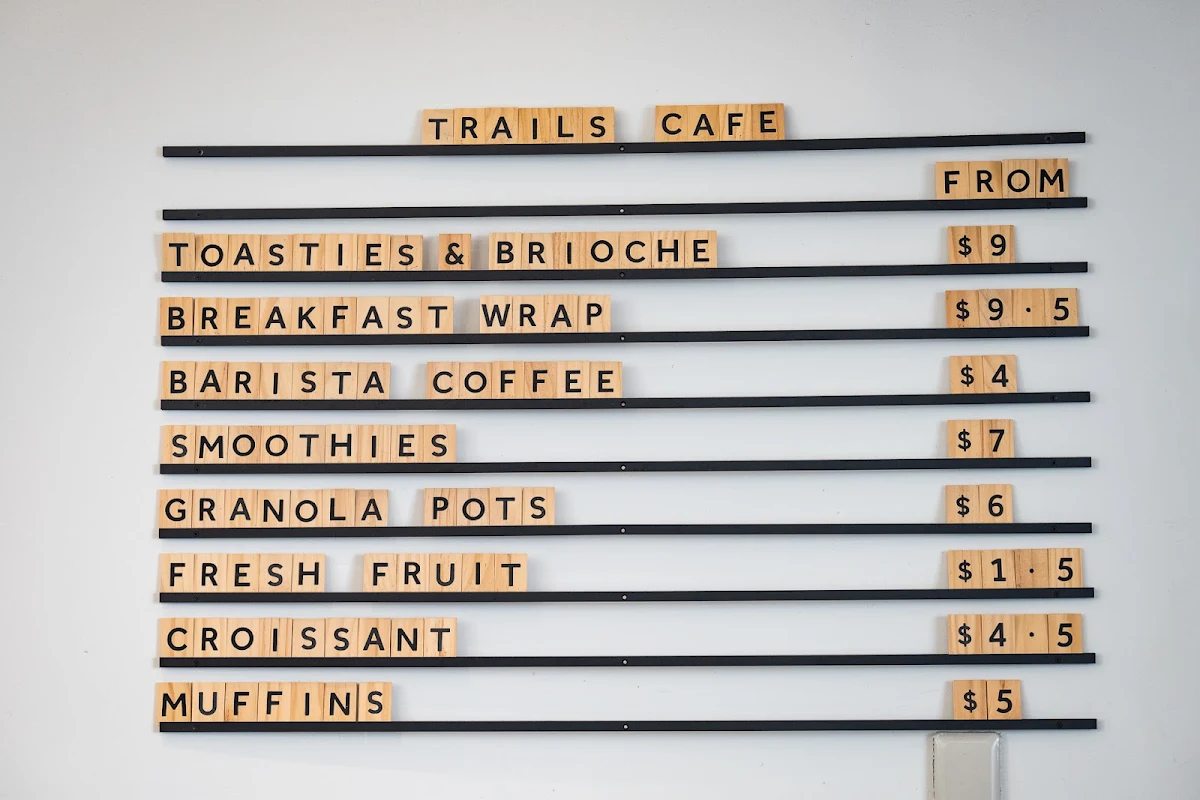 TRAILS CAFE
FROM
TOASTIES & BRIOCHE $9
BREAKFAST WRAP $9·5
BARISTA COFFEE $4
SMOOTHIES $7
GRANOLA POTS $6
FRESH FRUIT $1·5
CROISSANT $4·5
MUFFINS $5